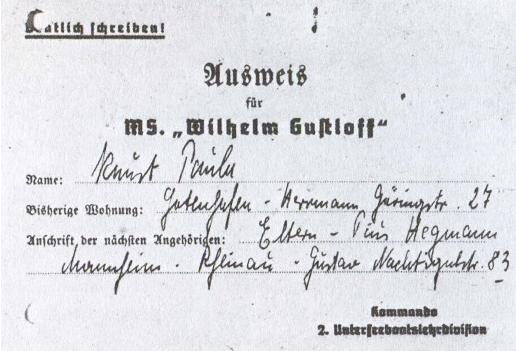 Deutlich schreiben!
Ausweis
für
MS. „Wilhelm Gustloff“
Name: Knust Paula
Bisherige Wohnung: Gotenhafen - Herrmann Göringstr. 27
Anschrift der nächsten Angehörigen: Eltern - Pius Hegmann
Mannheim - Rheinau - Gustav Nachtigalstr. 83
Kommando
2. Unterseebootslehrdivision